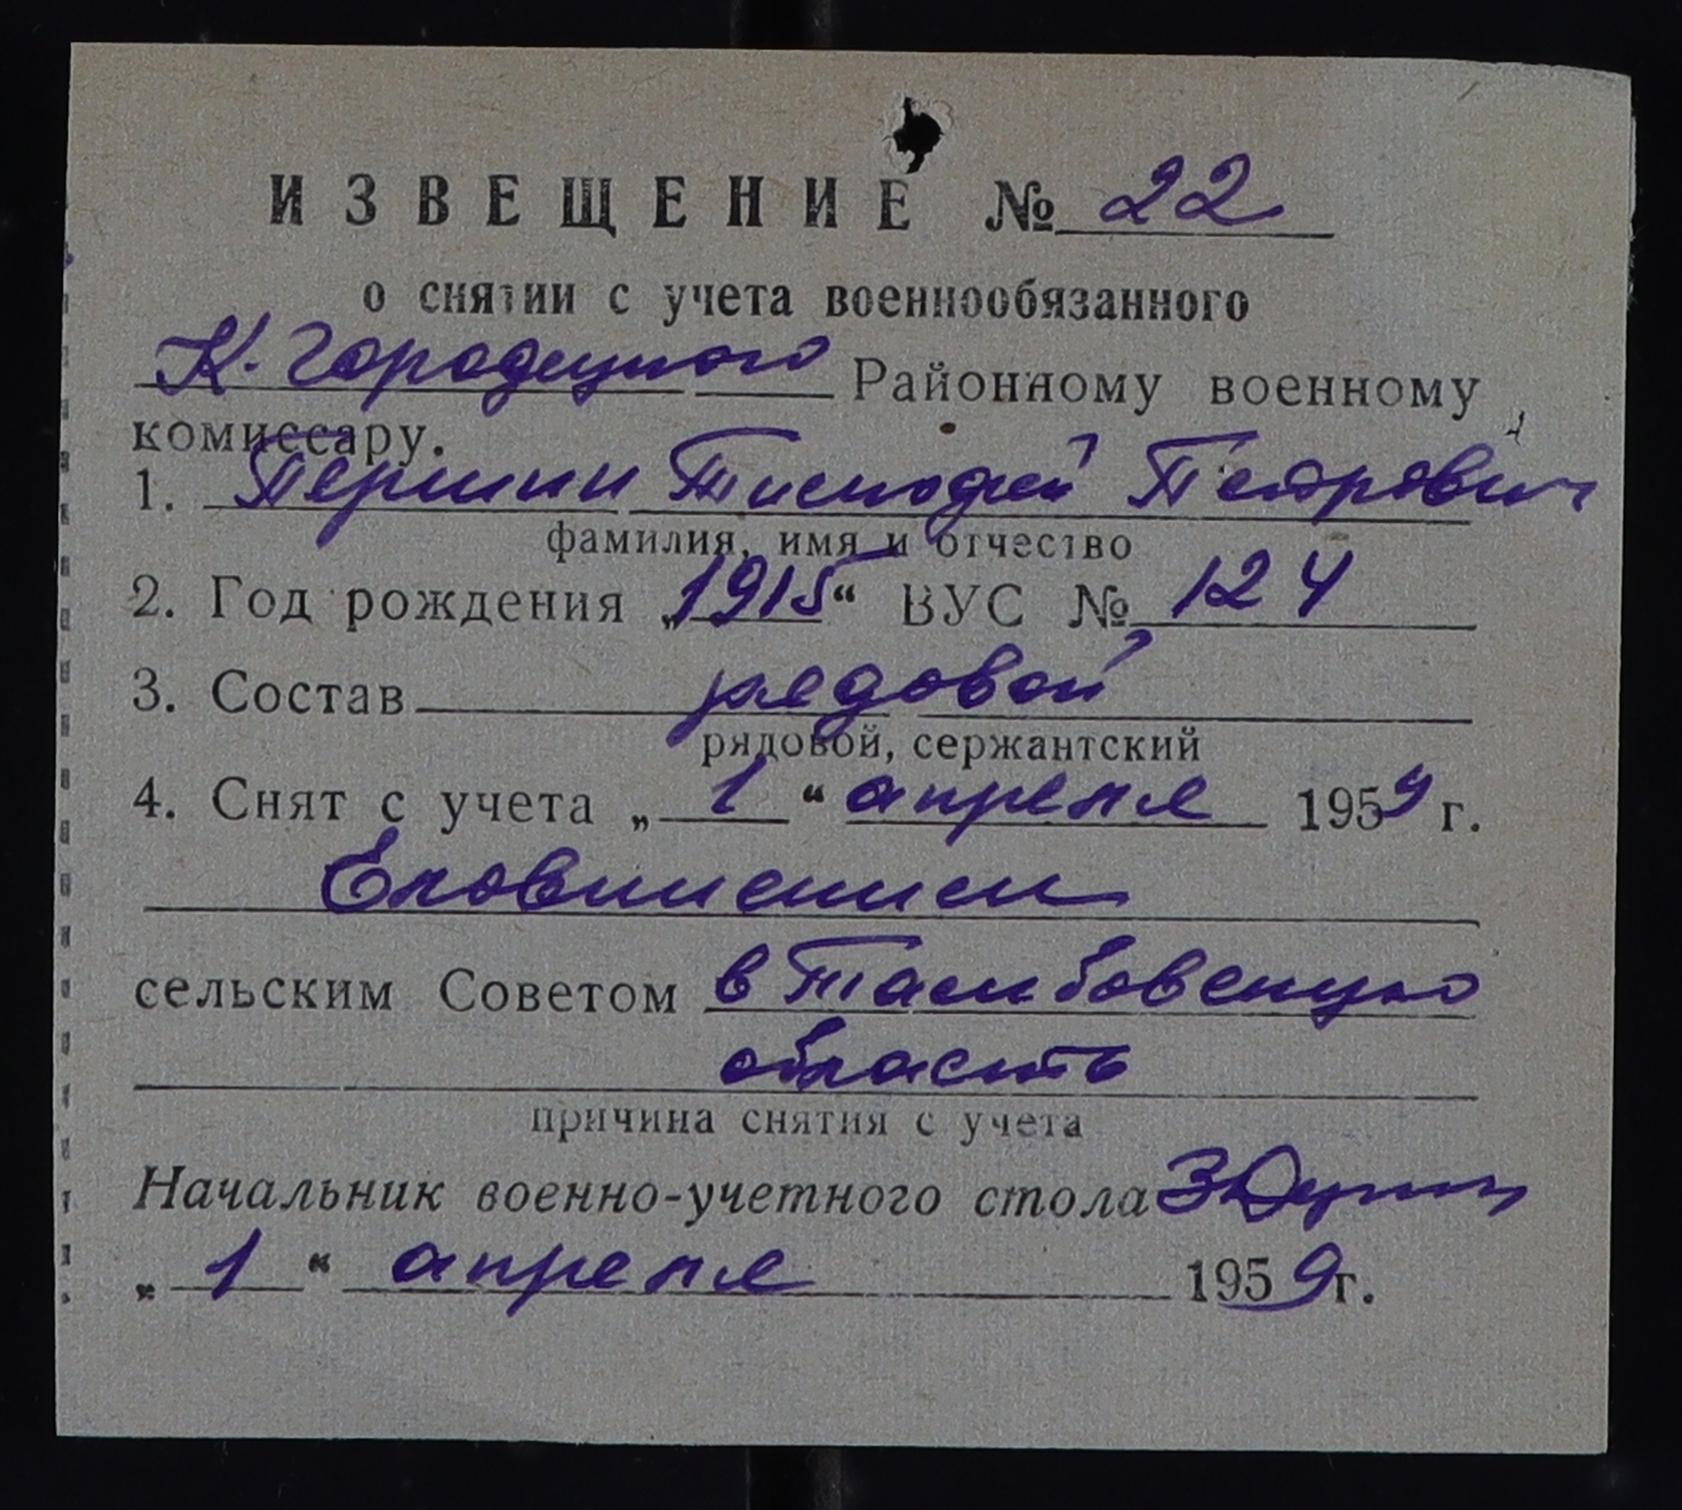 ИЗВЕЩЕНИЕ № 22
о снятии с учета военнообязанного
К-Городецкого Районному военному
комиссару.
1. Першин Тимофей Петрович
фамилия, имя и отчество
2. Год рождения „1915“ ВУС № 124
3. Состав рядовой
рядовой, сержантский
4. Снят с учета „1“ апреля 1959 г.
Еловишенским
сельским Советом в Тамбовскую
область
причина снятия с учета
Начальник военно-учетного стола
„1“ апреля 1959г.